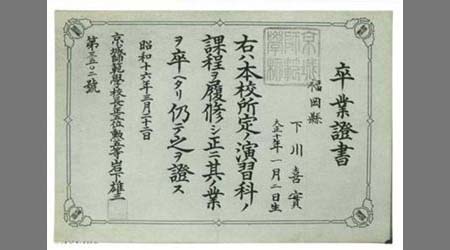 卒業證書
福岡縣
下川喜實
大正十年一月二日生
右ハ本校所定ノ演習科ノ
課程ヲ履修シ正ニ其ノ業
ヲ卒ヘタリ仍テ之ヲ證ス
昭和十六年三月二十二日
京城師範學校長正五位勲五等岩下雄三
第三五〇二號
京城師範學校